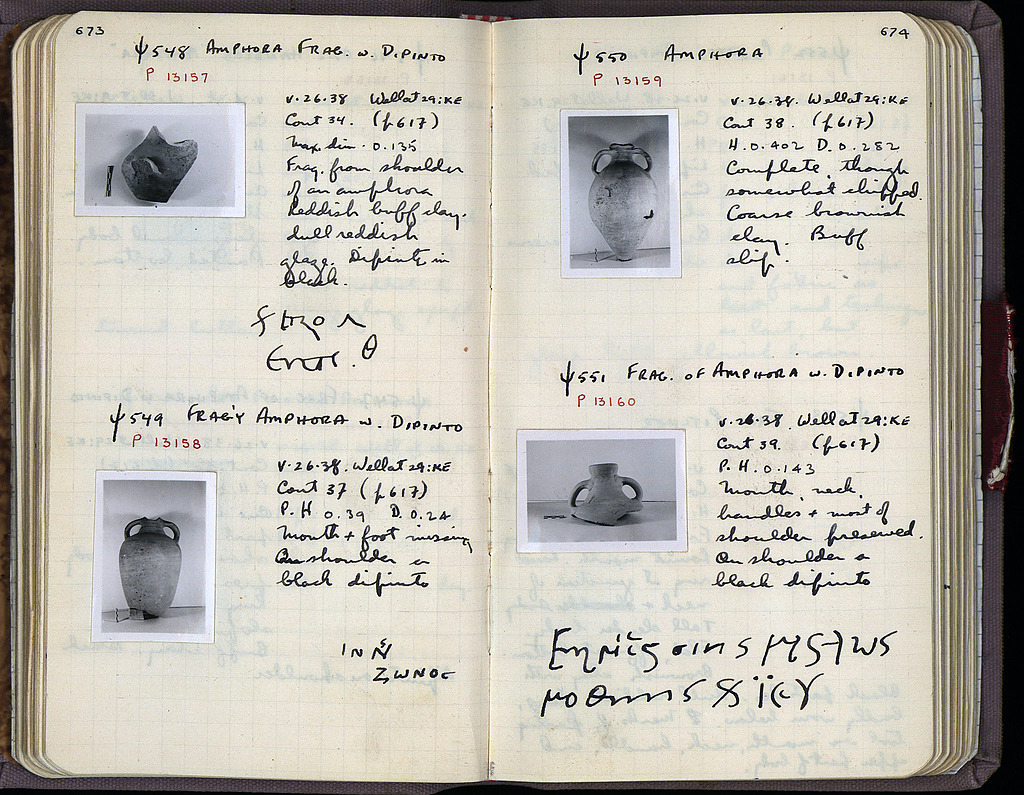 673
ψ548 AMPHORA FRAG. W. DIPINTO
P 13157
V.26.38 Well at 29:KE
Cont 34. (p617)
Max. dim. 0.135
Frag. from shoulder
of an amphora
Reddish buff clay.
dull reddish
glaze. Dipinto in
black.
ψ549 FRAG'Y AMPHORA W. DIPINTO
P 13158
V.26.38. Well at 29:KE
Cont 37 (p617)
P.H 0.39 D. 0.24
Mouth + foot missing
On shoulder a
black dipinto
ZWNOC
674
ψ550 AMPHORA
P 13159
V.26.38. Well at 29:KE
Cont 38. (p617)
H. 0.402 D. 0.282
Complete, though
somewhat chipped.
Coarse brownish
clay. Buff
slip.
ψ551 FRAG. OF AMPHORA W. DIPINTO
P 13160
V.26.38. Well at 29:KE
Cont 39. (p617)
P.H. 0.143
Mouth, neck,
handles + most of
shoulder preserved.
On shoulder a
black dipinto